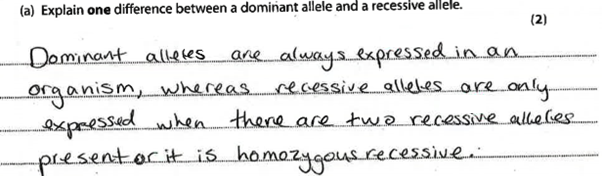 (a) Explain one difference between a dominant allele and a recessive allele.
(2)
Dominant alleles are always expressed in an
organism, whereas recessive alleles are only
expressed when there are two recessive alleles
present or it is homozygous recessive.